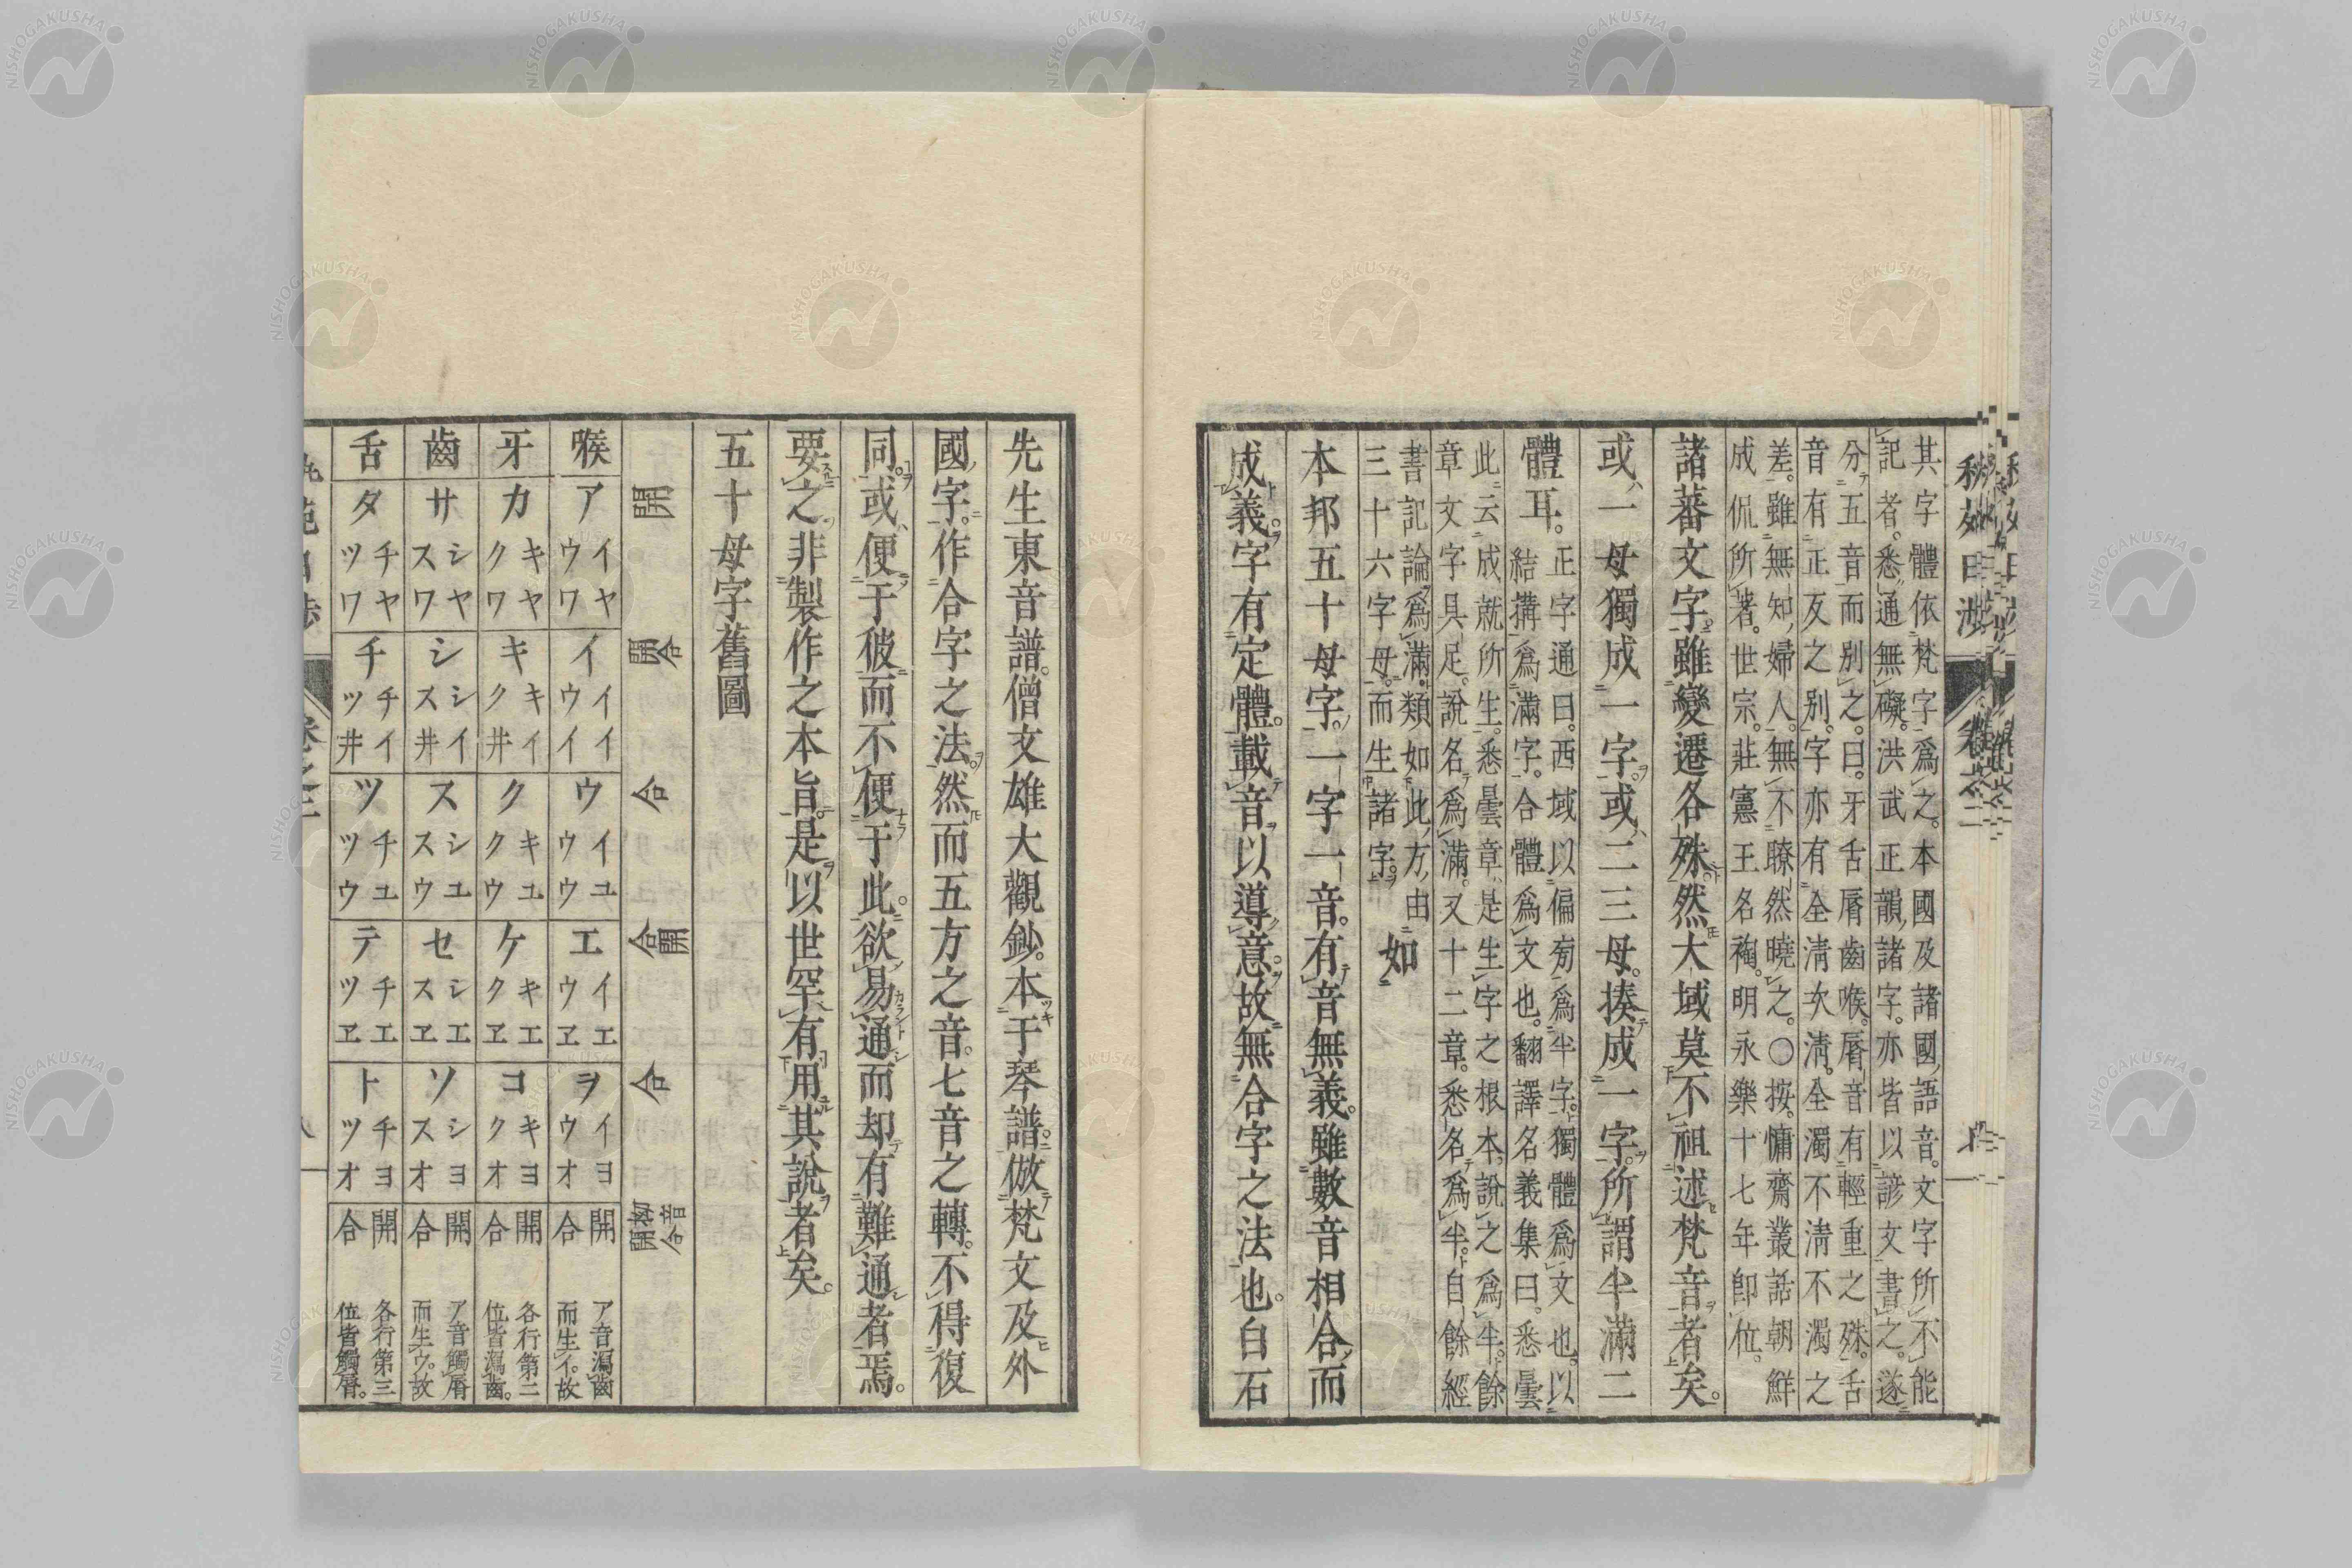 其字體依梵字爲之。本國及諸國語音。文字所不能
記者。悉通無礙。洪武正韻諸字。亦皆以諺文書之。遂
分五音而別之。曰。牙舌脣齒喉。脣音有輕重之殊。舌
音有正反之別。字亦有全淸次淸。全濁不淸不濁之
差。雖無知婦人。無不瞭然曉之。〇按。慵齋叢話朝鮮
成俔所著。世宗。莊憲王名裪。明永樂十七年卽位。
諸蕃文字。雖變遷各殊。然大域莫不祖述梵音者矣。
或一母獨成一字。或二三母。揍成一字。所謂半滿二
體耳。
正字通曰。西域以偏㫄爲半字。獨體爲文也。以
結搆爲滿字。合體爲文也。翻譯名義集曰。悉曇
此云成就所生。悉曇章。是生字之根本。說之爲半。餘
章文字具足。說名爲滿。又十二章。悉名爲半。自餘經
書記論爲滿。類如此方。由
三十六字母。而生諸字。
如
本邦五十母字。一字一音。有音無義。雖數音相合。而
成義。字有定體。載音以導意。故無合字之法也。白石
先生東音譜。僧文雄大觀鈔。本于琴譜。倣梵文及外
國字。作合字之法。然而五方之音。七音之轉。不得復
同。或便于彼而不便于此。欲易通而却有難通者焉。
要之非製作之本旨。是以世罕有用其說者矣。
五十母字舊圖
開
開合
合
開合
合
拗音開合
喉
ア イヤ ウワ
イ イイ ウイ
ウ イユ ウウ
エ イエ ウヱ
ヲ イヨ ウオ
開合
ア音濁齒
而生イ。故
牙
カ キヤ クワ
キ キイ ク井
ク キユ クウ
ケ キエ クヱ
コ キヨ クオ
開合
各行第二
位皆濁齒。
齒
サ シヤ スワ
シ シイ ス井
ス シユ スウ
セ シエ スヱ
ソ シヨ スオ
開合
ア音觸脣
而生ウ。故
舌
タ チヤ ツワ
チ チイ ツ井
ツ チユ ツウ
テ チエ ツヱ
ト チヨ ツオ
開合
各行第三
位皆觸脣。